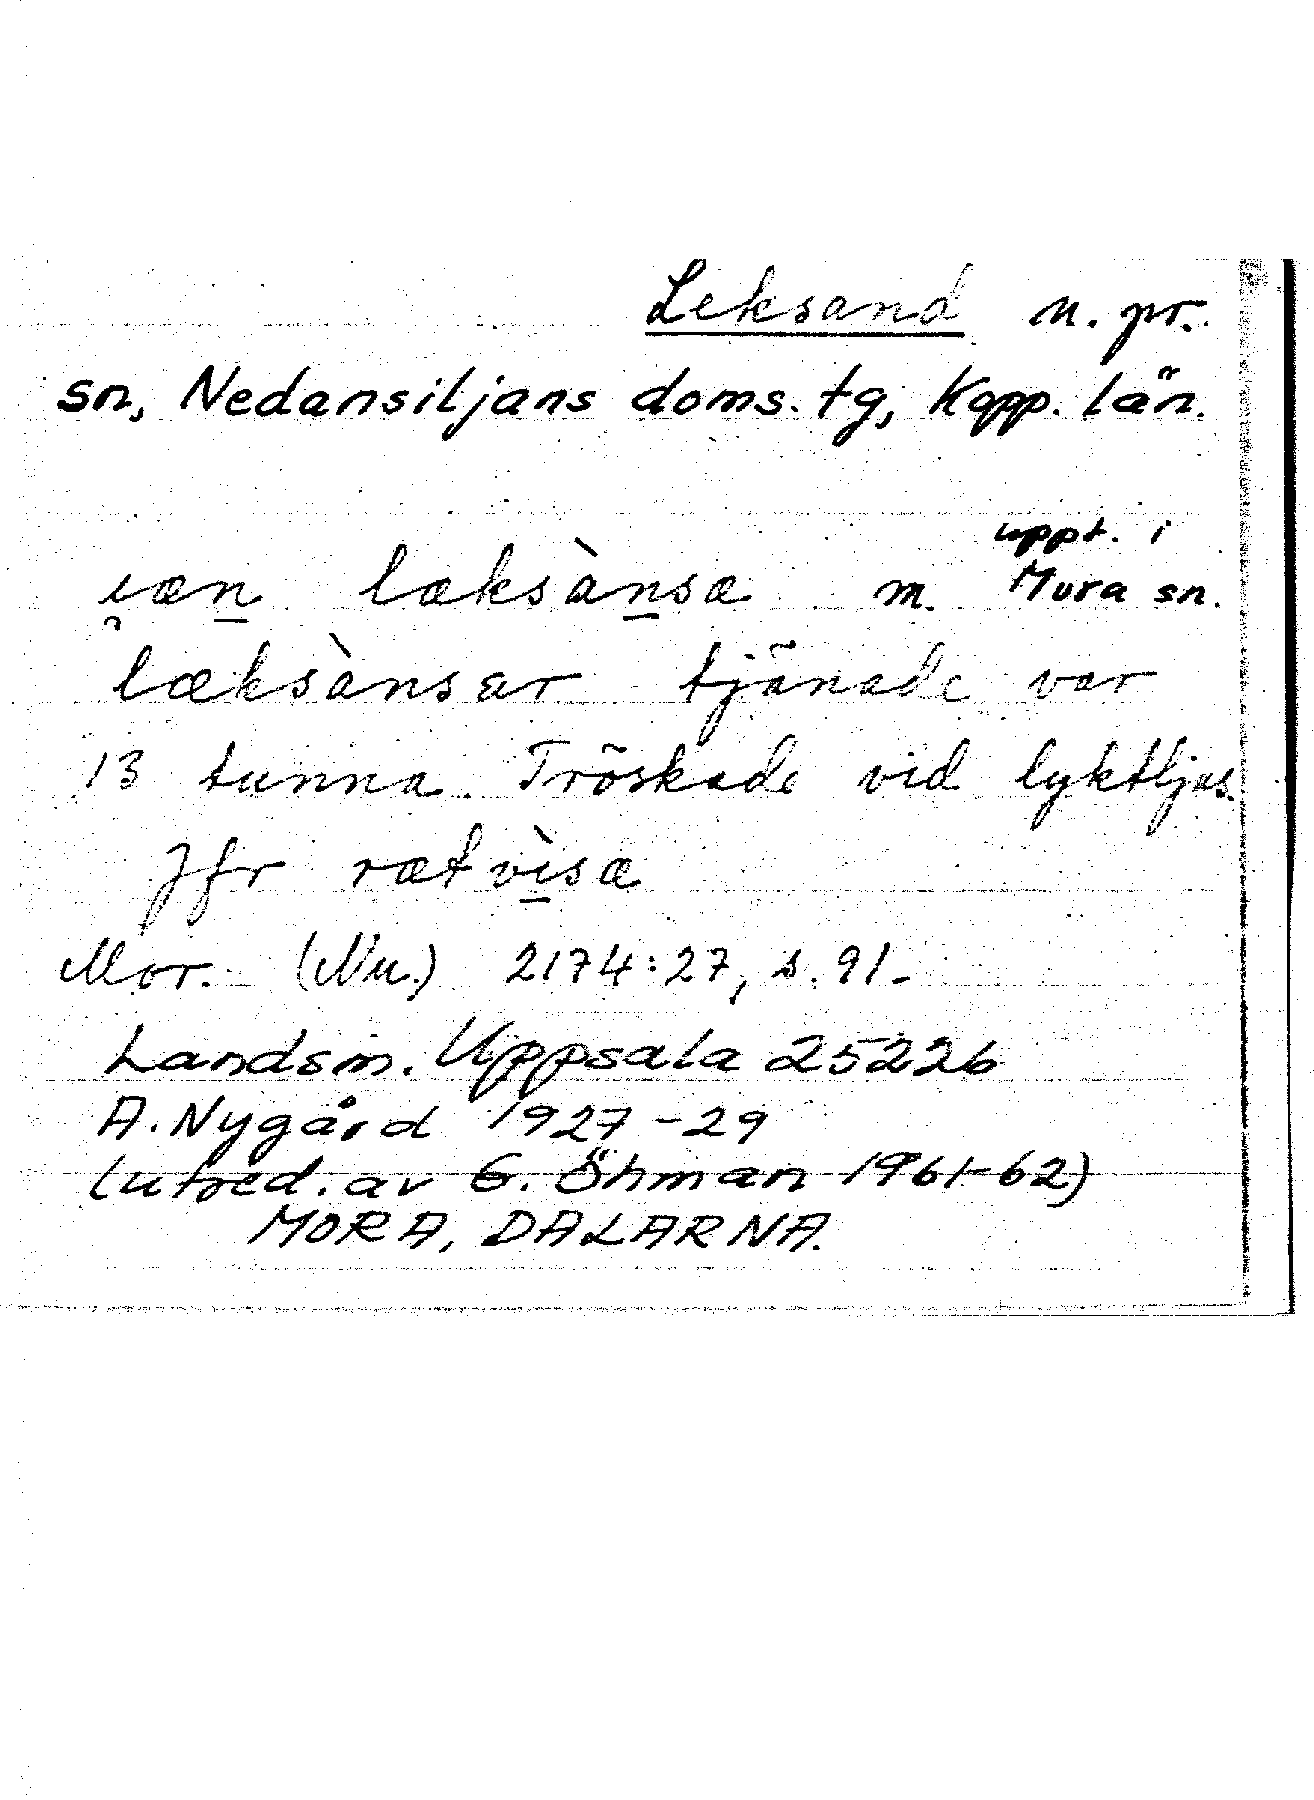 Leksand n. pr.
sn, Nedansiljans doms. tg, Kopp. län.
uppt. i
i̯æn læksànsa m. Mora sn.
læksànsar tjänade var
13 tunna. Tröskade vid lyktljus.
Jfr rætvìsa
Mor. (Nu.) 2174:27, s. 91.
Landsm. Uppsala 25226
A. Nygård 1927-29
(utred. av G. Öhman 1961-62)
MORA, DALARNA.